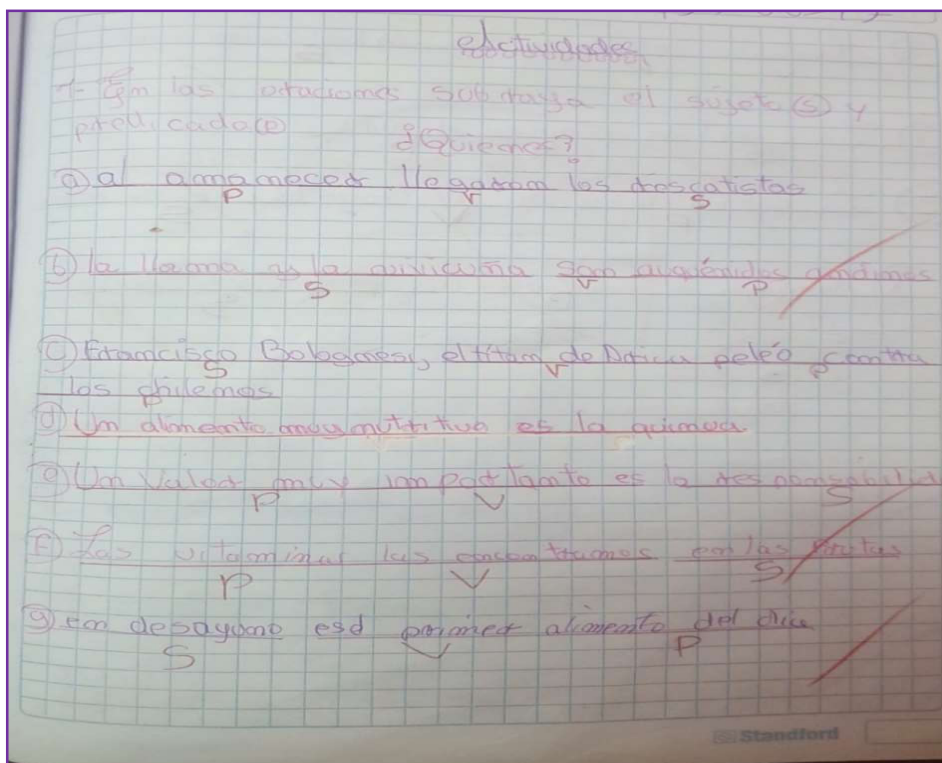 Actividades
1- En las oraciones subraya el sujeto (S) y
predicado (P)
¿Quienes?
a) al amamecer llegaron los rescatistas
P V S
b) la llama y la vicuña son auquénidos andinos
S V P
c) Francisco Bolognesi, el titan de Arica peleó contra
S V P
los chilenos
d) Un alimento muy nutritivo es la quinoa
e) Un valor muy importante es la responsabilid
P V S
F) Las vitaminas las encontramos en las frutas
P V S
g) en desayuno esd primer alimento del dia
S V P
Standford